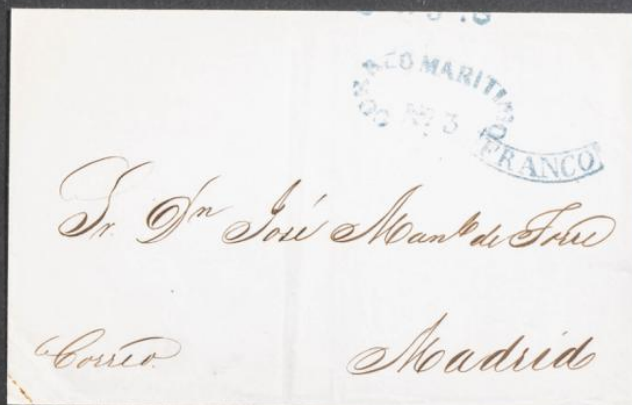 CORREO MARITIMO
Nº 3
FRANCO
Sr. Dn José Manl de Torre
Correo.
Madrid